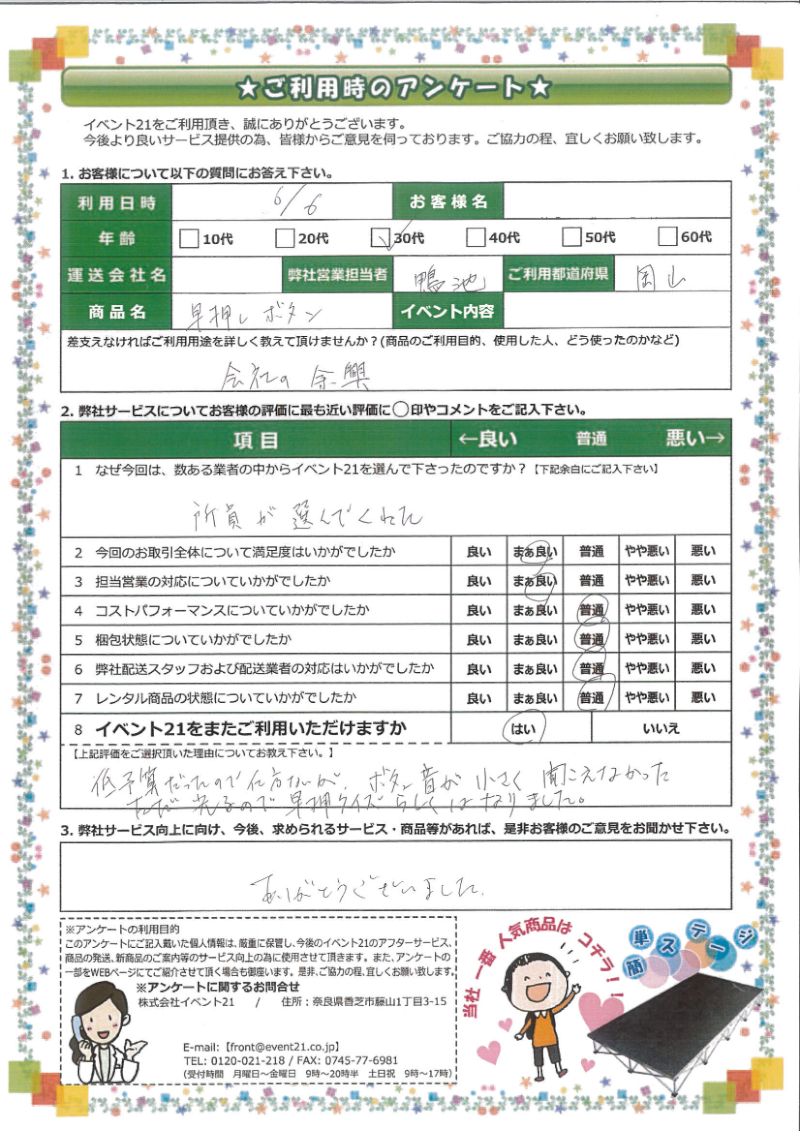 ★ご利用時のアンケート★
イベント21をご利用頂き、誠にありがとうございます。
今後より良いサービス提供の為、皆様からご意見を伺っております。ご協力の程、宜しくお願い致します。
1. お客様について以下の質問にお答え下さい。
利用日時 6/6 お客様名
年齢 10代 20代 30代 40代 50代 60代
運送会社名 弊社営業担当者 鴨池 ご利用都道府県 岡山
商品名 早押しボタン イベント内容
差支えなければご利用用途を詳しく教えて頂けませんか？(商品のご利用目的、使用した人、どう使ったのかなど)
会社の余興
2. 弊社サービスについてお客様の評価に最も近い評価に○印やコメントをご記入下さい。
項目 ←良い 普通 悪い→
1 なぜ今回は、数ある業者の中からイベント21を選んで下さったのですか？【下記余白にご記入下さい】
所員が選んでくれた
2 今回のお取引全体について満足度はいかがでしたか 良い まぁ良い 普通 やや悪い 悪い
3 担当営業の対応についていかがでしたか 良い まぁ良い 普通 やや悪い 悪い
4 コストパフォーマンスについていかがでしたか 良い まぁ良い 普通 やや悪い 悪い
5 梱包状態についていかがでしたか 良い まぁ良い 普通 やや悪い 悪い
6 弊社配送スタッフおよび配送業者の対応はいかがでしたか 良い まぁ良い 普通 やや悪い 悪い
7 レンタル商品の状態についていかがでしたか 良い まぁ良い 普通 やや悪い 悪い
8 イベント21をまたご利用いただけますか はい いいえ
【上記評価をご選択頂いた理由についてお教え下さい。】
低予算だったので仕方ないが、ボタン音が小さく聞こえなかった
ただ光るので早押クイズらしくはなりました。
3. 弊社サービス向上に向け、今後、求められるサービス・商品等があれば、是非お客様のご意見をお聞かせ下さい。
ありがとうございました。
※アンケートの利用目的
このアンケートにご記入戴いた個人情報は、厳重に保管し、今後のイベント21のアフターサービス、
商品の発送、新商品のご案内等のサービス向上の為に使用させて頂きます。また、アンケートの
一部をWEBページにてご紹介させて頂く場合も御座います。是非、ご協力の程、宜しくお願い致します。
※アンケートに関するお問合せ
株式会社イベント21 / 住所：奈良県香芝市藤山1丁目3-15
E-mail:【front@event21.co.jp】
TEL: 0120-021-218 / FAX: 0745-77-6981
(受付時間 月曜日～金曜日 9時～20時半 土日祝 9時～17時)
当社一番人気商品はコチラ！！
簡単ステージ